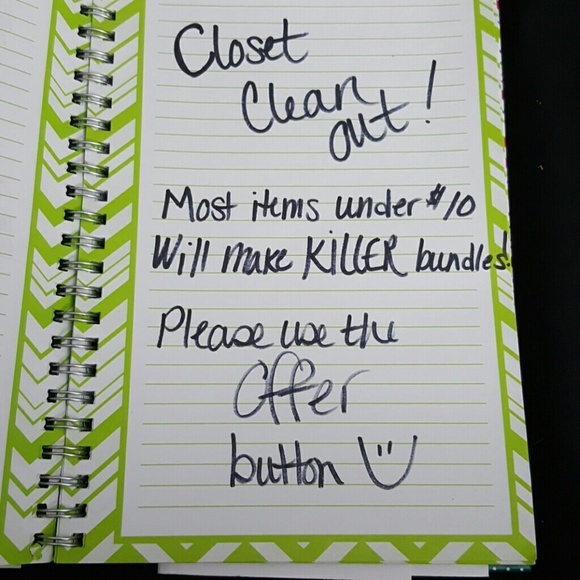 Closet
Clean
out!
Most items under $10
Will make KILLER bundles!
Please use the
Offer
button